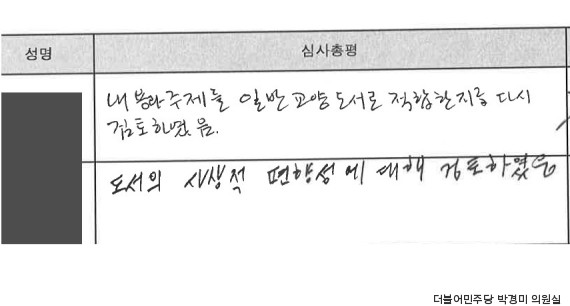 성명
심사총평
내용과 주제를 일반 교양도서로 적합한지를 다시
검토하였음.
도서의 사상적 편향성에 대해 검토하였음
더불어민주당 박경미 의원실